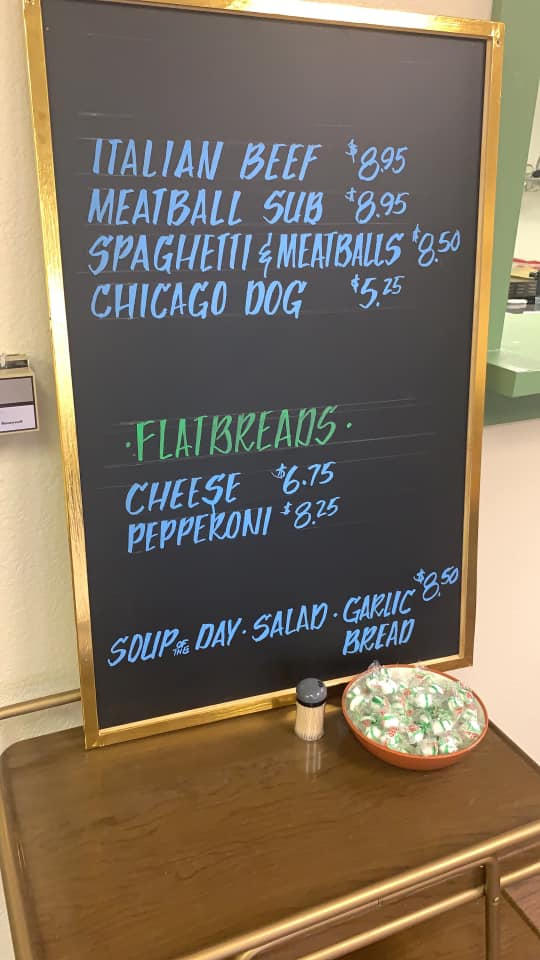 ITALIAN BEEF $8.95
MEATBALL SUB $8.95
SPAGHETTI & MEATBALLS $8.50
CHICAGO DOG $5.25
·FLATBREADS·
CHEESE $6.75
PEPPERONI $8.25
SOUP OF THE DAY · SALAD · GARLIC BREAD $8.50
Honeywell